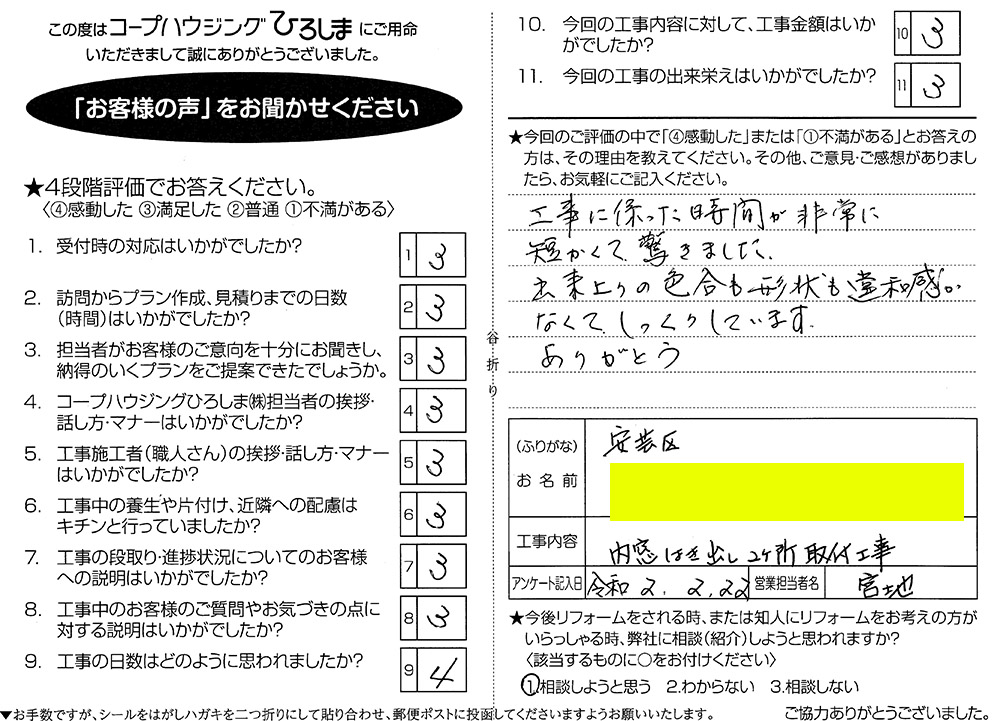 この度はコープハウジングひろしまにご用命
いただきまして誠にありがとうございました。
「お客様の声」をお聞かせください
★4段階評価でお答えください。
〈④感動した ③満足した ②普通 ①不満がある〉
1. 受付時の対応はいかがでしたか?
1 3
2. 訪問からプラン作成、見積りまでの日数
(時間)はいかがでしたか?
2 3
3. 担当者がお客様のご意向を十分にお聞きし、
納得のいくプランをご提案できたでしょうか。
3 3
4. コープハウジングひろしま㈱担当者の挨拶・
話し方・マナーはいかがでしたか?
4 3
5. 工事施工者(職人さん)の挨拶・話し方・マナー
はいかがでしたか?
5 3
6. 工事中の養生や片付け、近隣への配慮は
キチンと行っていましたか?
6 3
7. 工事の段取り・進捗状況についてのお客様
への説明はいかがでしたか?
7 3
8. 工事中のお客様のご質問やお気づきの点に
対する説明はいかがでしたか?
8 3
9. 工事の日数はどのように思われましたか?
9 4
▼お手数ですが、シールをはがしハガキを二つ折りにして貼り合わせ、郵便ポストに投函してくださいますようお願いいたします。
谷折り
10. 今回の工事内容に対して、工事金額はいか
がでしたか?
10 3
11. 今回の工事の出来栄えはいかがでしたか?
11 3
★今回のご評価の中で「④感動した」または「①不満がある」とお答えの
方は、その理由を教えてください。その他、ご意見・ご感想がありまし
たら、お気軽にご記入ください。
工事に係った時間が非常に
短かくて驚きました。
出来上りの色合も形状も違和感が
なくて しっくりしています。
ありがとう
(ふりがな)
お名前
安芸区
工事内容
内窓はき出し2ヶ所取付工事
アンケート記入日 令和2.2.22 営業担当者名 宮地
★今後リフォームをされる時、または知人にリフォームをお考えの方が
いらっしゃる時、弊社に相談(紹介)しようと思われますか?
〈該当するものに○をお付けください〉
①.相談しようと思う 2.わからない 3.相談しない
ご協力ありがとうございました。